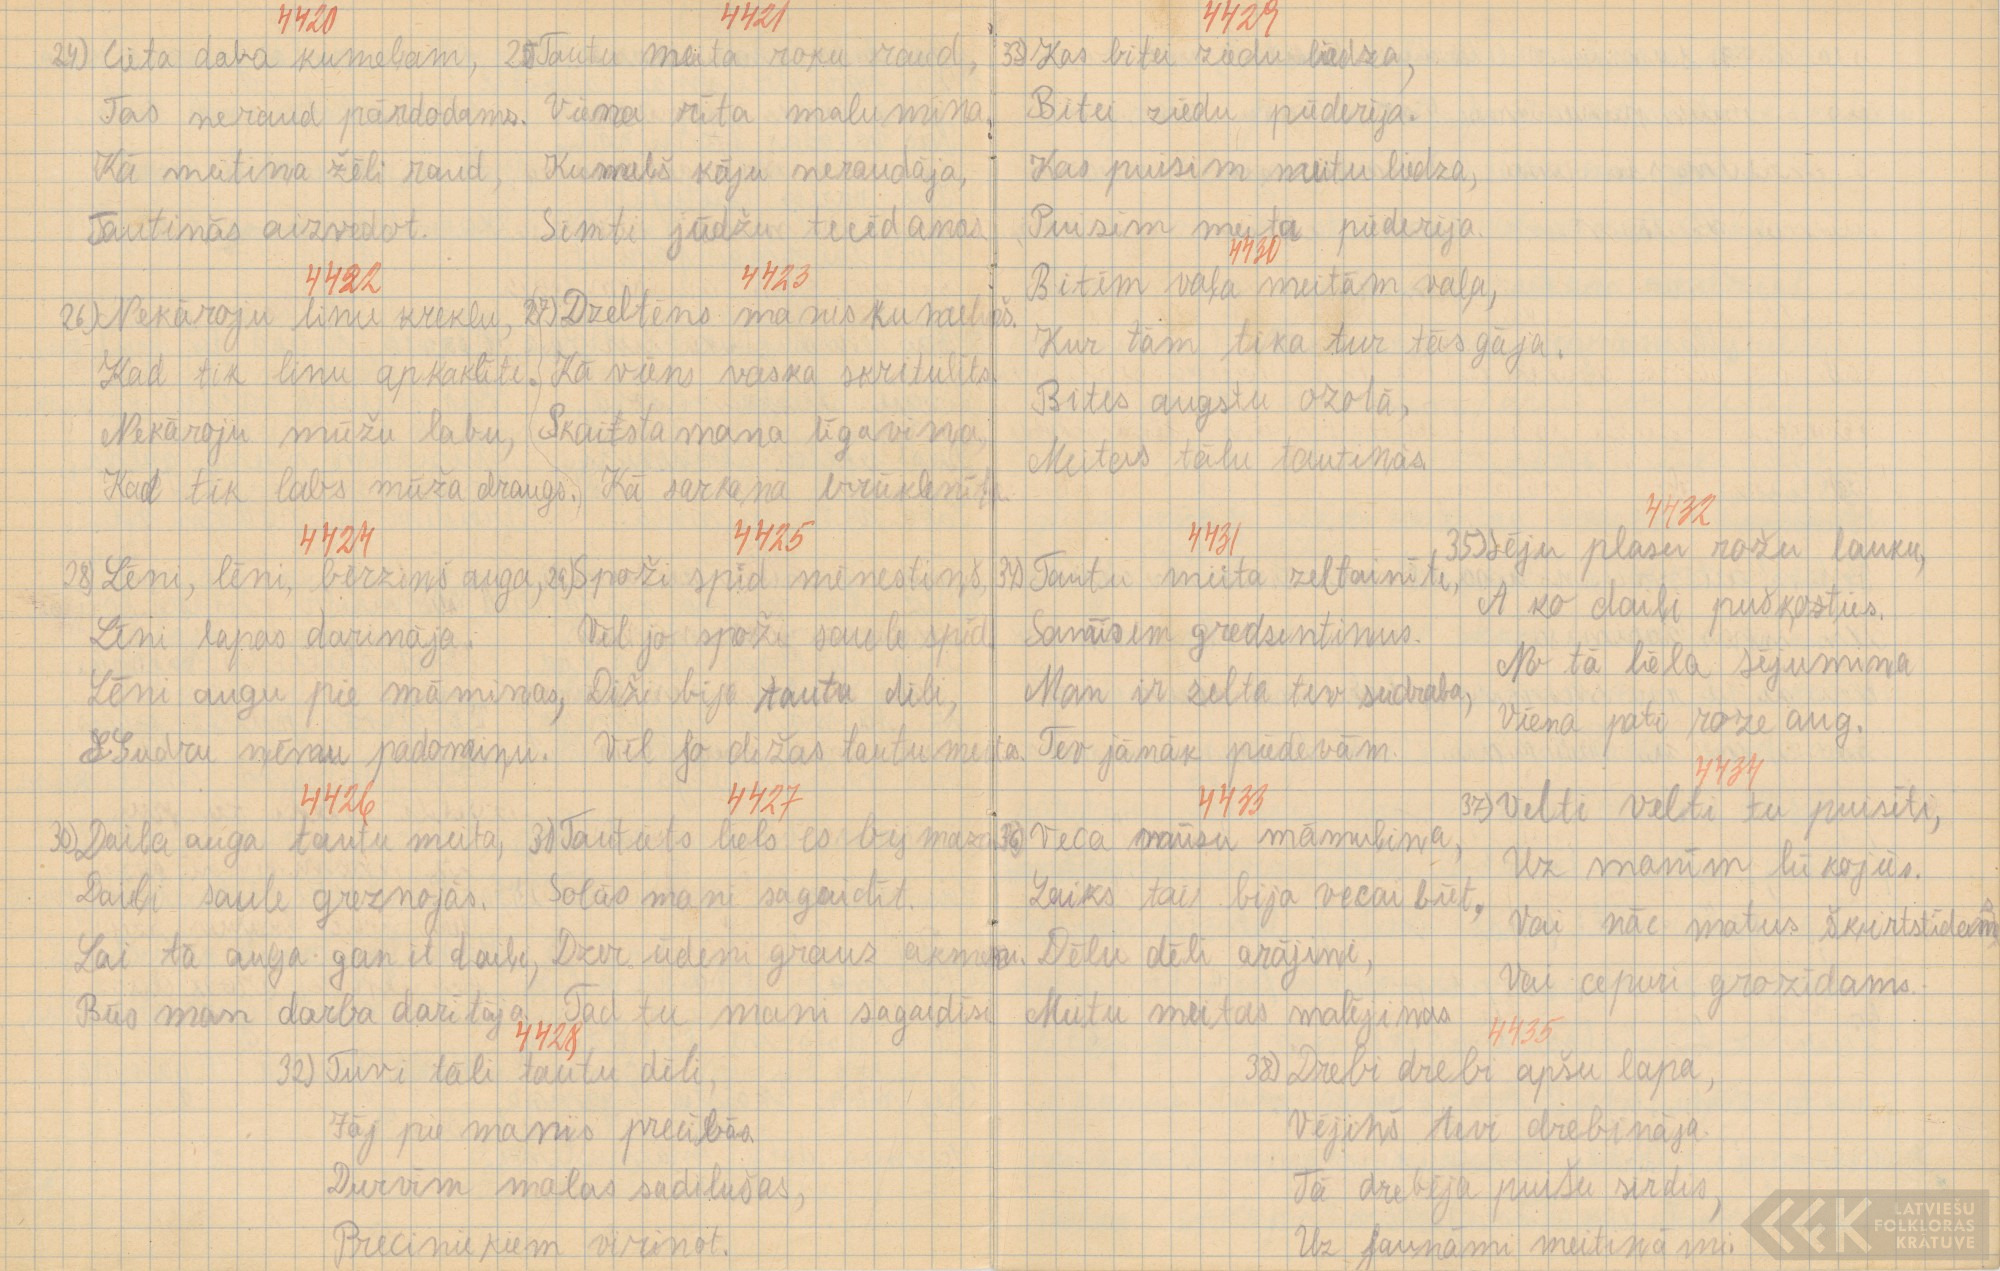 4420
24) Cieta daba kumeļam,
Tas neraud pārdodams.
Kā meitiņa žēli raud,
Tautiņās aizvedot.
4421
25) Tautu meita roku raud,
Viena rīta malumiņa.
Kumeliš kāju neraudāja,
Simti jūdžu tecēdamas.
4422
26) Nekāroju linu kreklu,
Kad tik linu apkaklīte.
Nekāroju mūžu labu,
Kad tik labs mūža draugs.
4423
27) Dzeltēns manis kumeliņš.
Kā viens vaska skritulīts.
Skaitsta mana līgaviņa,
Kā sarkana brūklenīte.
4424
28) Lēni, lēni, bērziņš auga,
Lēni lapas darināja.
Lēni augu pie māmiņas,
Gudru ņēmu padomiņu.
4425
29) Spoži spīd mēnestiņš,
Vēl jo spoži saule spīd.
Diži bija tautu dēli,
Vēl jo dižas tautu meitas.
4426
30) Daiļa auga tautu meita,
Daiļi saule greznojās.
Lai tā auga gan it daiļi,
Būs man darba darītāja.
4427
31) Tautiets liels es bij maza
Solās mani sagaidīt.
Dzer ūdeni grauz akmeņu.
Tad tu mani sagaidīsi
4428
32) Tuvi tāli tautu dēli,
Jāj pie manis precībās.
Durvīm malas sadilušas,
Preciniekiem virinot.
4429
33) Kas bitei ziedu liedza,
Bitei ziedu piederēja.
Kas puisim meitu liedza,
Puisim meita piederēja.
4430
Bitēm vaļa meitām vaļa,
Kur tām tika tur tās gāja.
Bites augstu ozolā,
Meitas tālu tautiņās.
4431
34) Tautu meita zeltainīte,
Samīsim gredzentiņus.
Man ir zelta tev sudraba,
Tev jānāk piedevām.
4432
35) Sēju plašu rožu lauku,
A ko daiļi puškosties.
No tā liela sējumiņa
Viena pati roze aug.
4433
36) Veca mūsu māmuliņa,
Laiks tai bija vecai būt,
Dēlu dēli arājiņi,
Meitu meitas malējiņas
4434
37) Velti velti tu puisīti,
Uz manīm lūkojies.
Vai nāc matus šķirstīdams
Vai cepuri grozīdams.
4435
38) Drebi drebi apšu lapa,
Vējiņš tevi drebināja.
Tā drebēja puišu sirdis,
Uz jaunāmi meitiņāmi.
LATVIEŠU
FOLKLORAS
KRĀTUVE